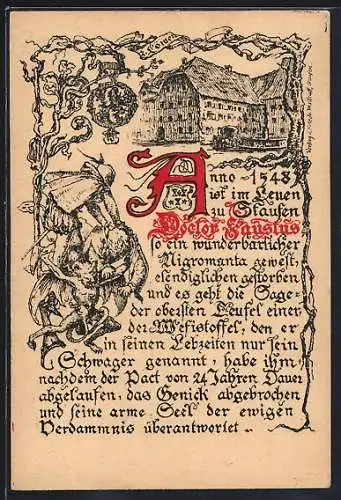 z. Löwen
Anno 1548
ist im Leuen
zu Staufen
Doctor Faustus
so ein wunderbarlicher
Nigromanta gewest,
elendiglichen gestorben
und es geht die Sage
der obersten Teufel einer
der Mefistoffel, den er
in seinen Lebzeiten nur sein
Schwager genannt, habe ihm
nachdem der Pact von 24 Jahren Dauer
abgelaufen, das Genick abgebrochen
und seine arme Seel der ewigen
Verdammnis überantwortet ..